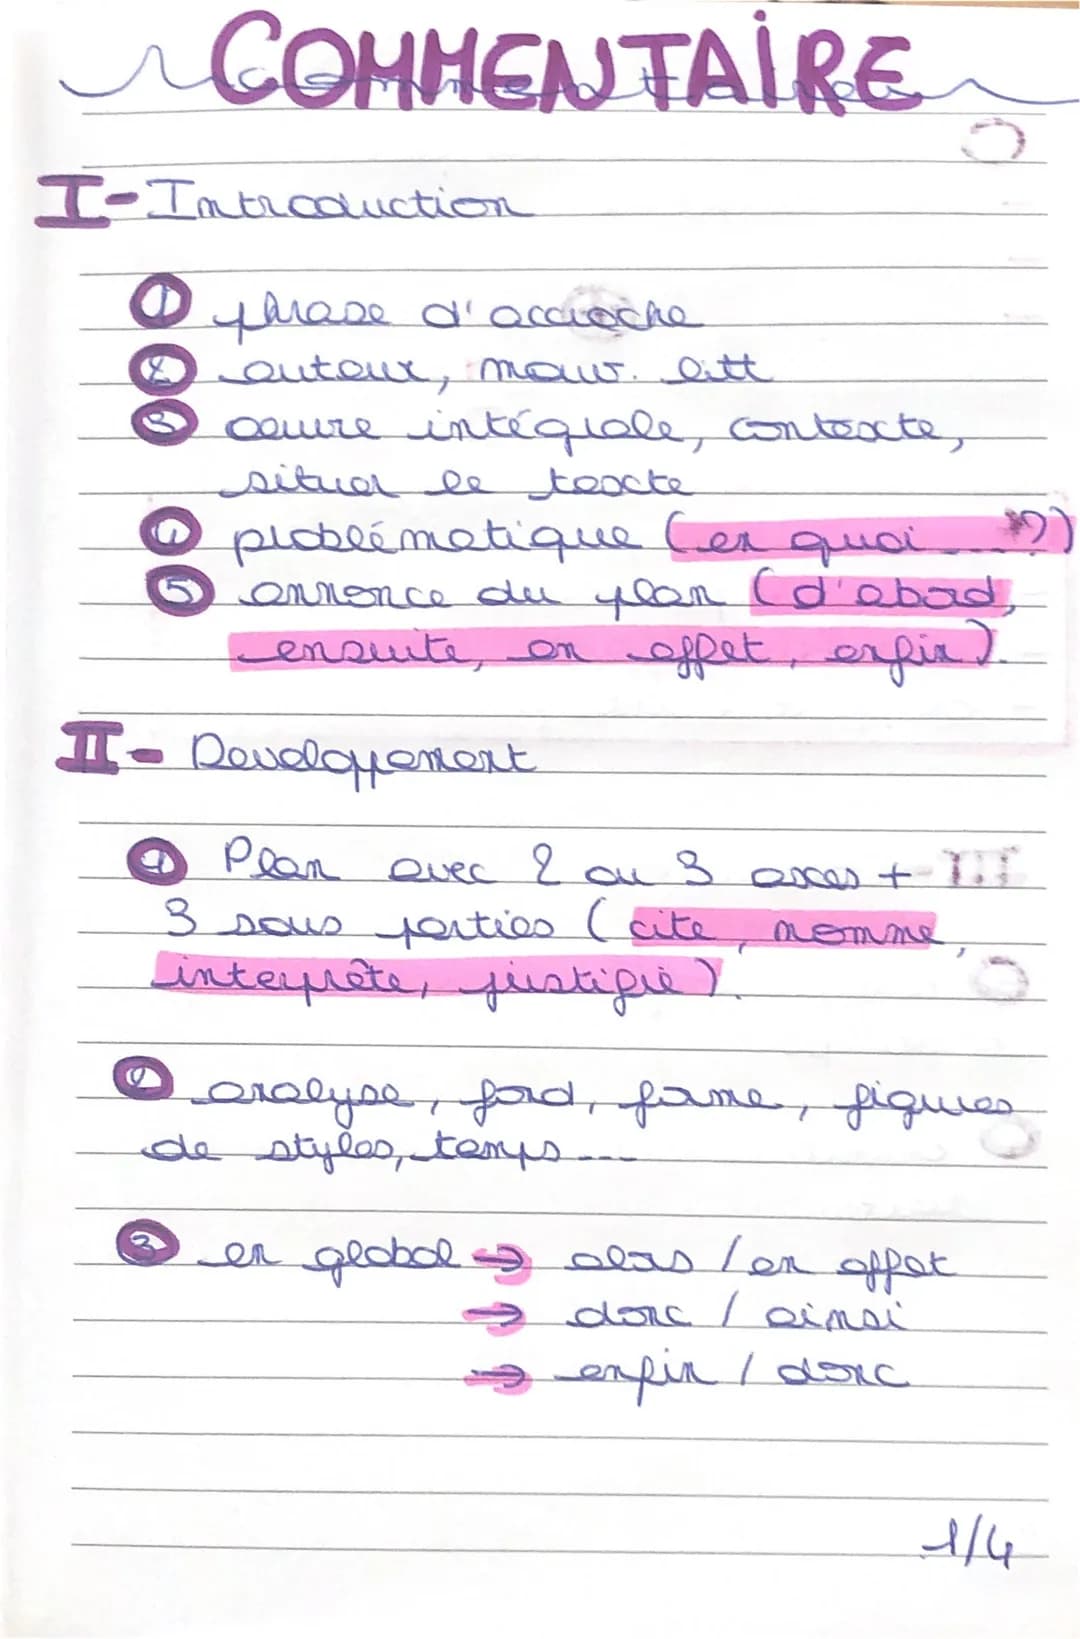 COMMENTAIRE
I - Introduction
1 phrase d'accroche
2 auteur, mouv. litt
3 oeuvre intégrale, contexte,
situer le texte
4 problématique (en quoi ... ?)
5 annonce du plan (d'abord,
ensuite, en effet, enfin).
II - Developpement
1 Plan avec 2 ou 3 axes +
3 sous parties (cite, nomme,
interprête, justifie).
2 analyse, fond, forme, figures
de styles, temps ...
3 en global → alors / en effet
→ donc / ainsi
→ enfin / donc
1/4